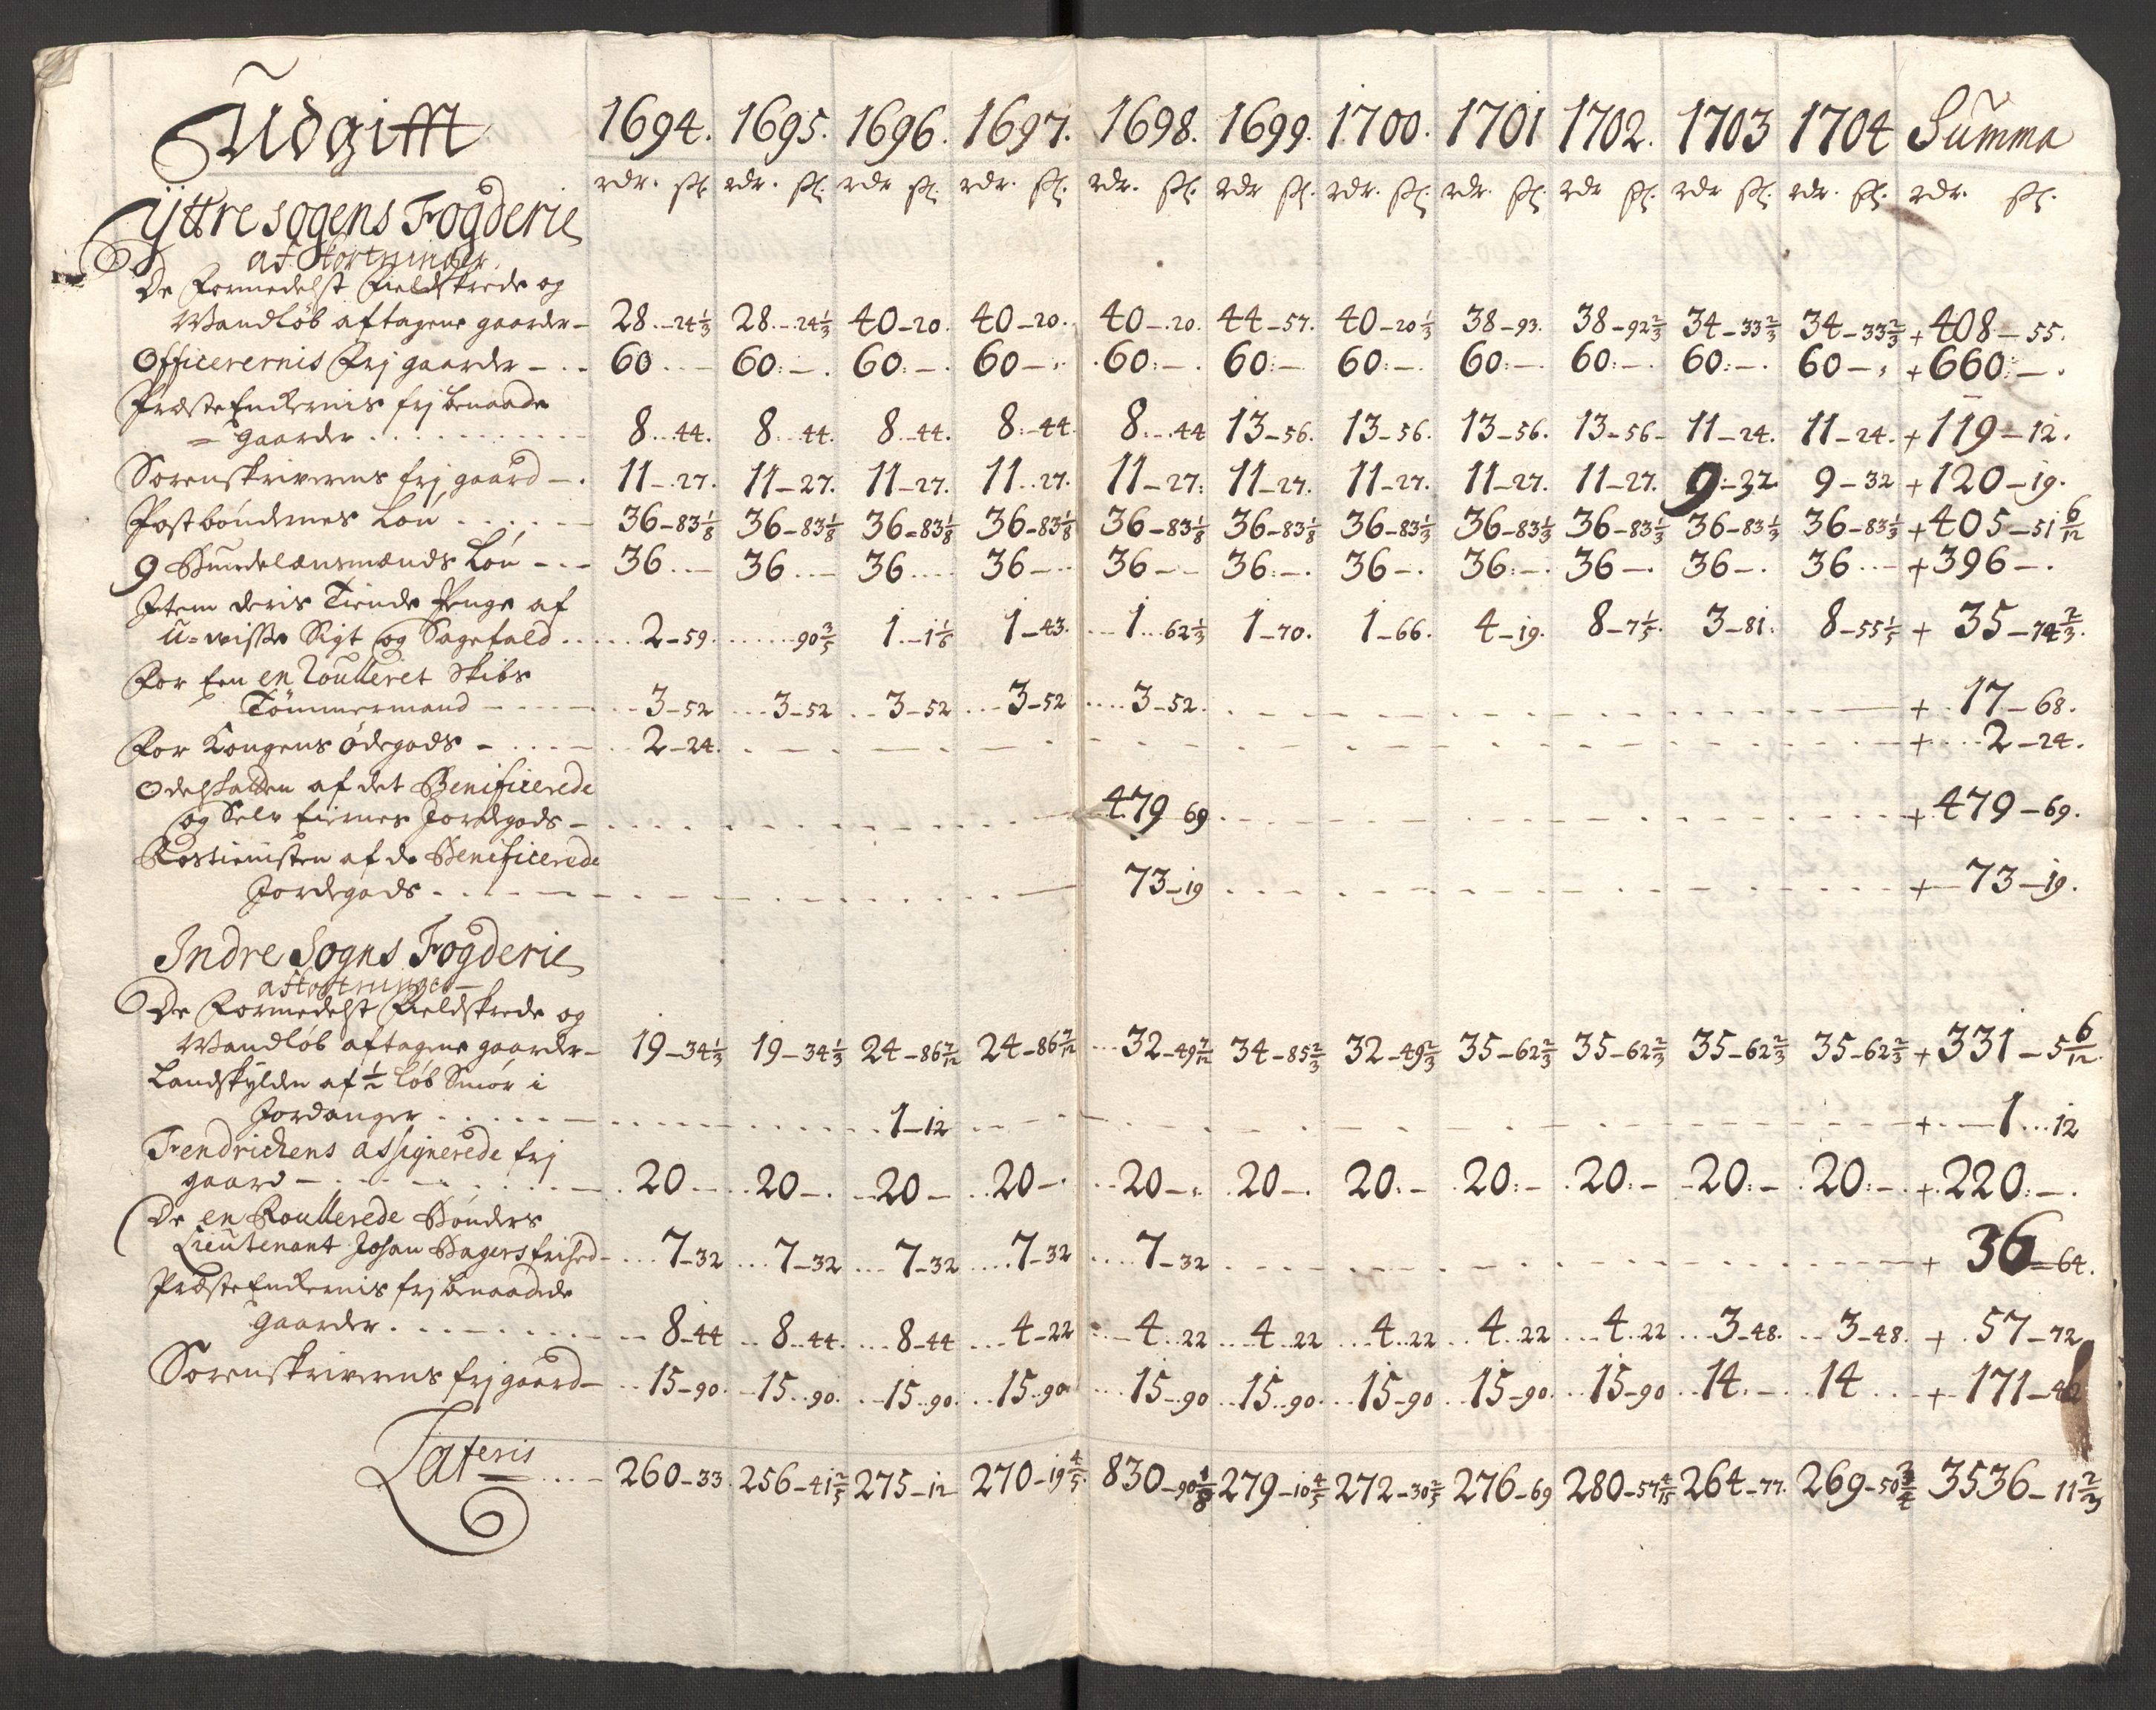 Udgifft 1694. 1695. 1696. 1697. 1698. 1699. 1700. 1701 1702. 1703 1704 Summa
rdr. ſſ. rdr. ſſ. rdr ſſ. rdr. ſſ. rdr. ſſ. rdr ſſ. rdr. ſſ. rdr. ſſ. rdr ſſ. rdr ſſ. rdr. ſſ. rdr. ſſ.
Yttre sogens Fogderie
afkortninger
De formedelst Fieldskrede og
Wandløb aftagene gaarder – 28 – 24 1/3 28 – 24 1/3 40 – 20. 40 – 20. 40 – 20. 44 – 57. 40 – 20 1/3 38 – 93. 38 – 92 2/3 34 – 33 2/3 34 – 33 2/3 + 408 – 55.
Officerernis frj gaarder – 60 – 60: – 60: – 60 – 60: – 60: – 60: – 60: – 60: – 60: – 60 – + 660: –
Præste Enkernis frj benaade
= gaarder 8 – 44. 8 – 44. 8 – 44. 8 – 44. 8 – 44 13 – 56. 13 – 56. 13 – 56. 13 – 56 – 11 – 24. 11 – 24. + 119 – 12.
Sorenskriverens frj gaard – 11 – 27. 11 – 27. 11 – 27. 11 – 27. 11 – 27: 11 – 27. 11 – 27. 11 – 27. 11 – 27. 9 – 32. 9 – 32 + 120 – 19.
Postbøndernes Løn 36 – 83 1/8 36 – 83 1/8 36 – 83 1/8 36 – 83 1/8 36 – 83 1/8 36 – 83 1/8 36 – 83 1/3 36 – 83 1/3 36 – 83 1/3 36 – 83 1/3 36 – 83 1/3 + 405 – 51 6/12
9 Bundelænsmænds Løn – 36 – 36 – 36 – 36 – 36 – 36: – 36 – 36: – 36 – 36 – 36 – + 396 –
Item deris Tiende Penge af
u-wisse Sigt og Sagefald 2 – 59. 90 3/5 1 – 1 1/5 1 – 43. 1 – 62 1/3 1 – 70. 1 – 66. 4 – 19. 8 – 7 1/5. 3 – 81. 8 – 55 1/5 + 35 – 74 2/3.
For Een en Roulleret Skibs
Tømmermand – 3 – 52 3 – 52 3 – 52 3 – 52 3 – 52. + 17 – 68.
For Kongens ødegods – 2 – 24. + 2 – 24.
Odelskatten af det Benificerede
og Selv Eiernes Jordegods – 479 69 + 479 – 69.
Rostienisten af de Benificerede
Jordegods 73 – 19 + 73 – 19.
Indre Sogns Fogderie
afkortninger
De formedelst Fieldskrede og
Wandløb aftagene gaarder – 19 – 34 1/3 19 – 34 1/3 24 – 86 7/12 24 – 86 7/12 32 – 49 7/12 34 – 85 2/3 32 – 49 2/3 35 – 62 2/3 35 – 62 2/3 35 – 62 2/3 35 – 62 2/3 + 331 – 5 6/12.
Landskylden af 1/2 løb Smør i
Jordanger 1 – 12 + 1 – 12
Fendrichens assignerede frj
gaard – 20 – 20 – 20 – 20 – 20 – 20 – 20: – 20: – 20: – 20: – 20: – + 220: –
De en Roullerede Bønders
Lieutenant Johan Hagers frihed – 7 – 32 7 – 32 7 – 32 7 – 32 7 – 32 + 36 – 64.
Præste Enkernis frj benaadede
Gaarder 8 – 44 8 – 44. 8 – 44 4 – 22 4 – 22 4 – 22 4 – 22 4 – 22 4 – 22 3 – 48. 3 – 48. + 57 – 72
Sorenskriverens frj gaard – 15 – 90. 15 – 90. 15 – 90. 15 – 90 15 – 90 15 – 90. 15 – 90 15 – 90. 15 – 90 14. – 14 + 171 – 42
Lateris 260 – 33. 256 – 41 2/5 275 – 12 270 – 19 4/5. 830 – 90 1/8 279 – 10 4/5 272 – 30 2/5 276 – 69 280 – 57 4/15 264 – 77. 269 – 50 3/4 3536 – 11 2/3